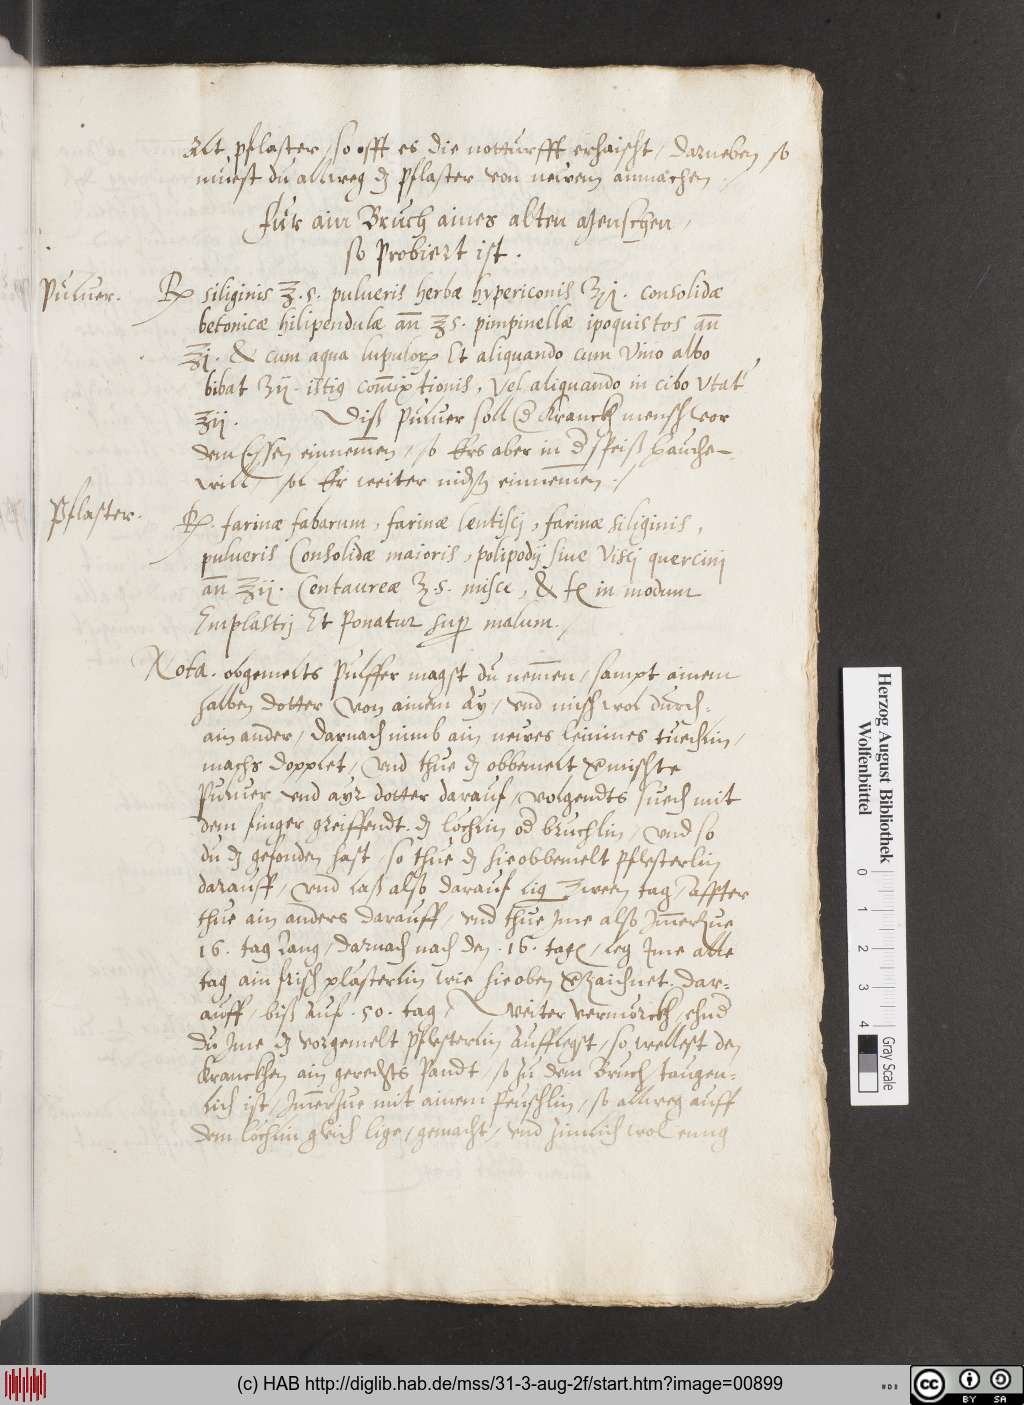 Alt pflaster / so offt es die notturfft erhaischt / darneben so
muest du allweg dz pflaster von newem anmachen /
Für ain Bruch aines alten Menschen /
so Probiert ist .
Puluer .
Rp siliginis ʒ . s . pulueris herbæ hypericonis ʒij . consolidæ
betonicæ hilipendulæ añ ʒs . pimpinellæ ipoquistos añ
ʒj . & cum aqua lupulorum Et aliquando cum Vino albo
bibat ʒij . istius com̄ixtionis , Vel aliquando in cibo Vtat'
ʒij . Diß Puluer soll d Kranckh mensch vor
dem Essen einnem̄en / so Ers aber in d speiß brauchē
will / sol Er weiter nichts einnemen /
Pflaster .
Rp . farinæ fabarum , farinæ lentiscj , farinæ siliginis ,
pulueris Consolidæ maioris , polipodij siue Viscj quercinj
añ ʒij . Centaureæ ʒ . s . misce , & f in modum
Emplastrj Et Ponatur sup malum . /
Nota . obgemelts Pulffer magst du nem̄en / sampt ainem
halben dotter von ainem Ay / vnd misch wol durch=
ain ander / darnach nimb ain newes leinines tuechlin /
machs dopplet / vnd thue dz obbemelt vermischte
Puluer vnd ayr dotter darauf / volgendts suech mit
dem finger greiffendt . dz lochlin od bruchlin / vnd so
du dz gefonden hast / so thue dz hieobbemelt pflesterlin
darauff / vnd laß also darauf lig zween tag / affter
thue ain anders darauff / vnd thue Jme also Jm̄erzue
16 . tag lang / darnach nach den . 16 . tag / leg Jme alle
tag ain frisch plasterlin wie hieoben verzaichnet . dar=
auff / biß auf . 50 . tag / Weiter vermörckh / ehnd
du Jme dz vorgemelt pflesterlin aufflegst / so wellest den
Kranckhen ain gerechts Pandt / so zu dem Bruch taugen=
lich ist / Jm̄erzue mit ainem Peuschlin / so allweg auff
dem lochlin gleich lige / gemacht / vnd zimlich wol enng
Herzog August Bibliothek
Wolfenbüttel
0 1 2 3 4
Gray Scale
(c) HAB http://diglib.hab.de/mss/31-3-aug-2f/start.htm?image=00899
cc BY SA